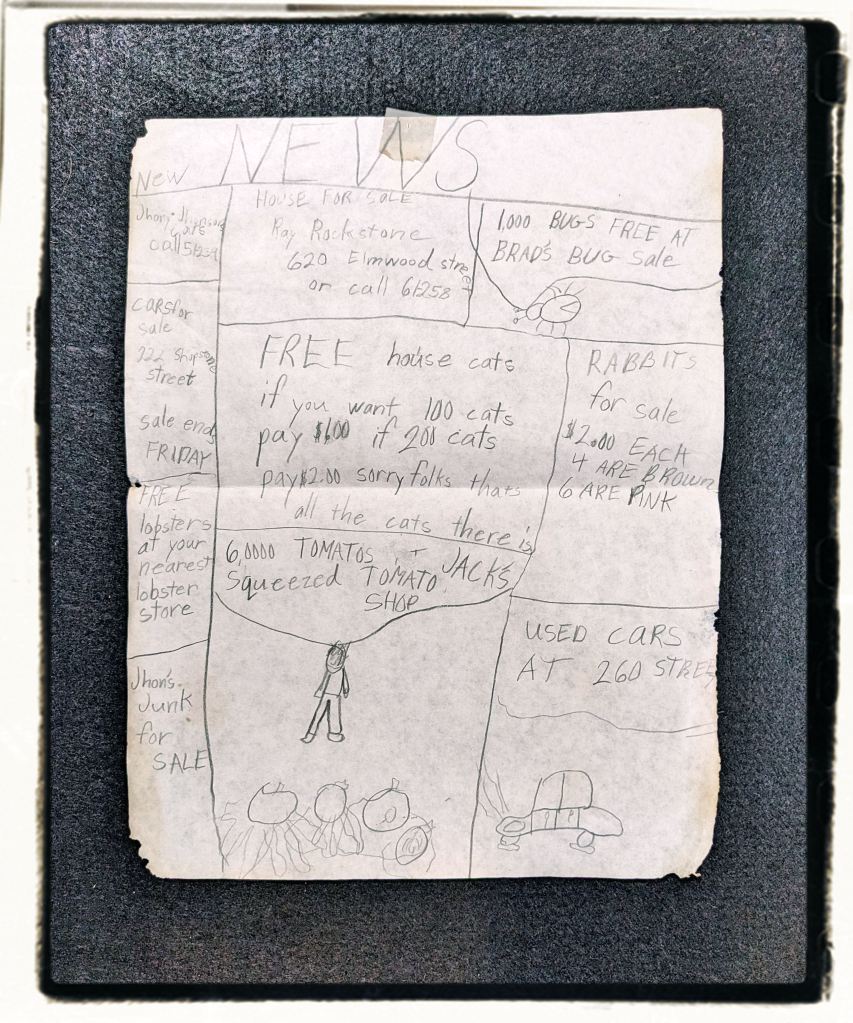 New NEWS
Jhony Jhonsons
Cats
call 51239
CARS for
sale
922 Shopstone
street
sale ends
FRIDAY
FREE
lobsters
at your
nearest
lobster
store
Jhon's
Junk
for
SALE
HOUSE FOR SALE
Ray Rockstone
620 Elmwood street
or call 61258
1,000 BUGS FREE AT
BRAD'S BUG Sale
FREE house cats
if you want 100 cats
pay $1.00 if 200 cats
pay $2.00 sorry folks thats
all the cats there is
RABBITS
for sale
$2.00 EACH
4 ARE BROWN
6 ARE PINK
6,0000 TOMATOS +
Squeezed TOMATO JACK'S
SHOP
USED CARS
AT 260 STREET